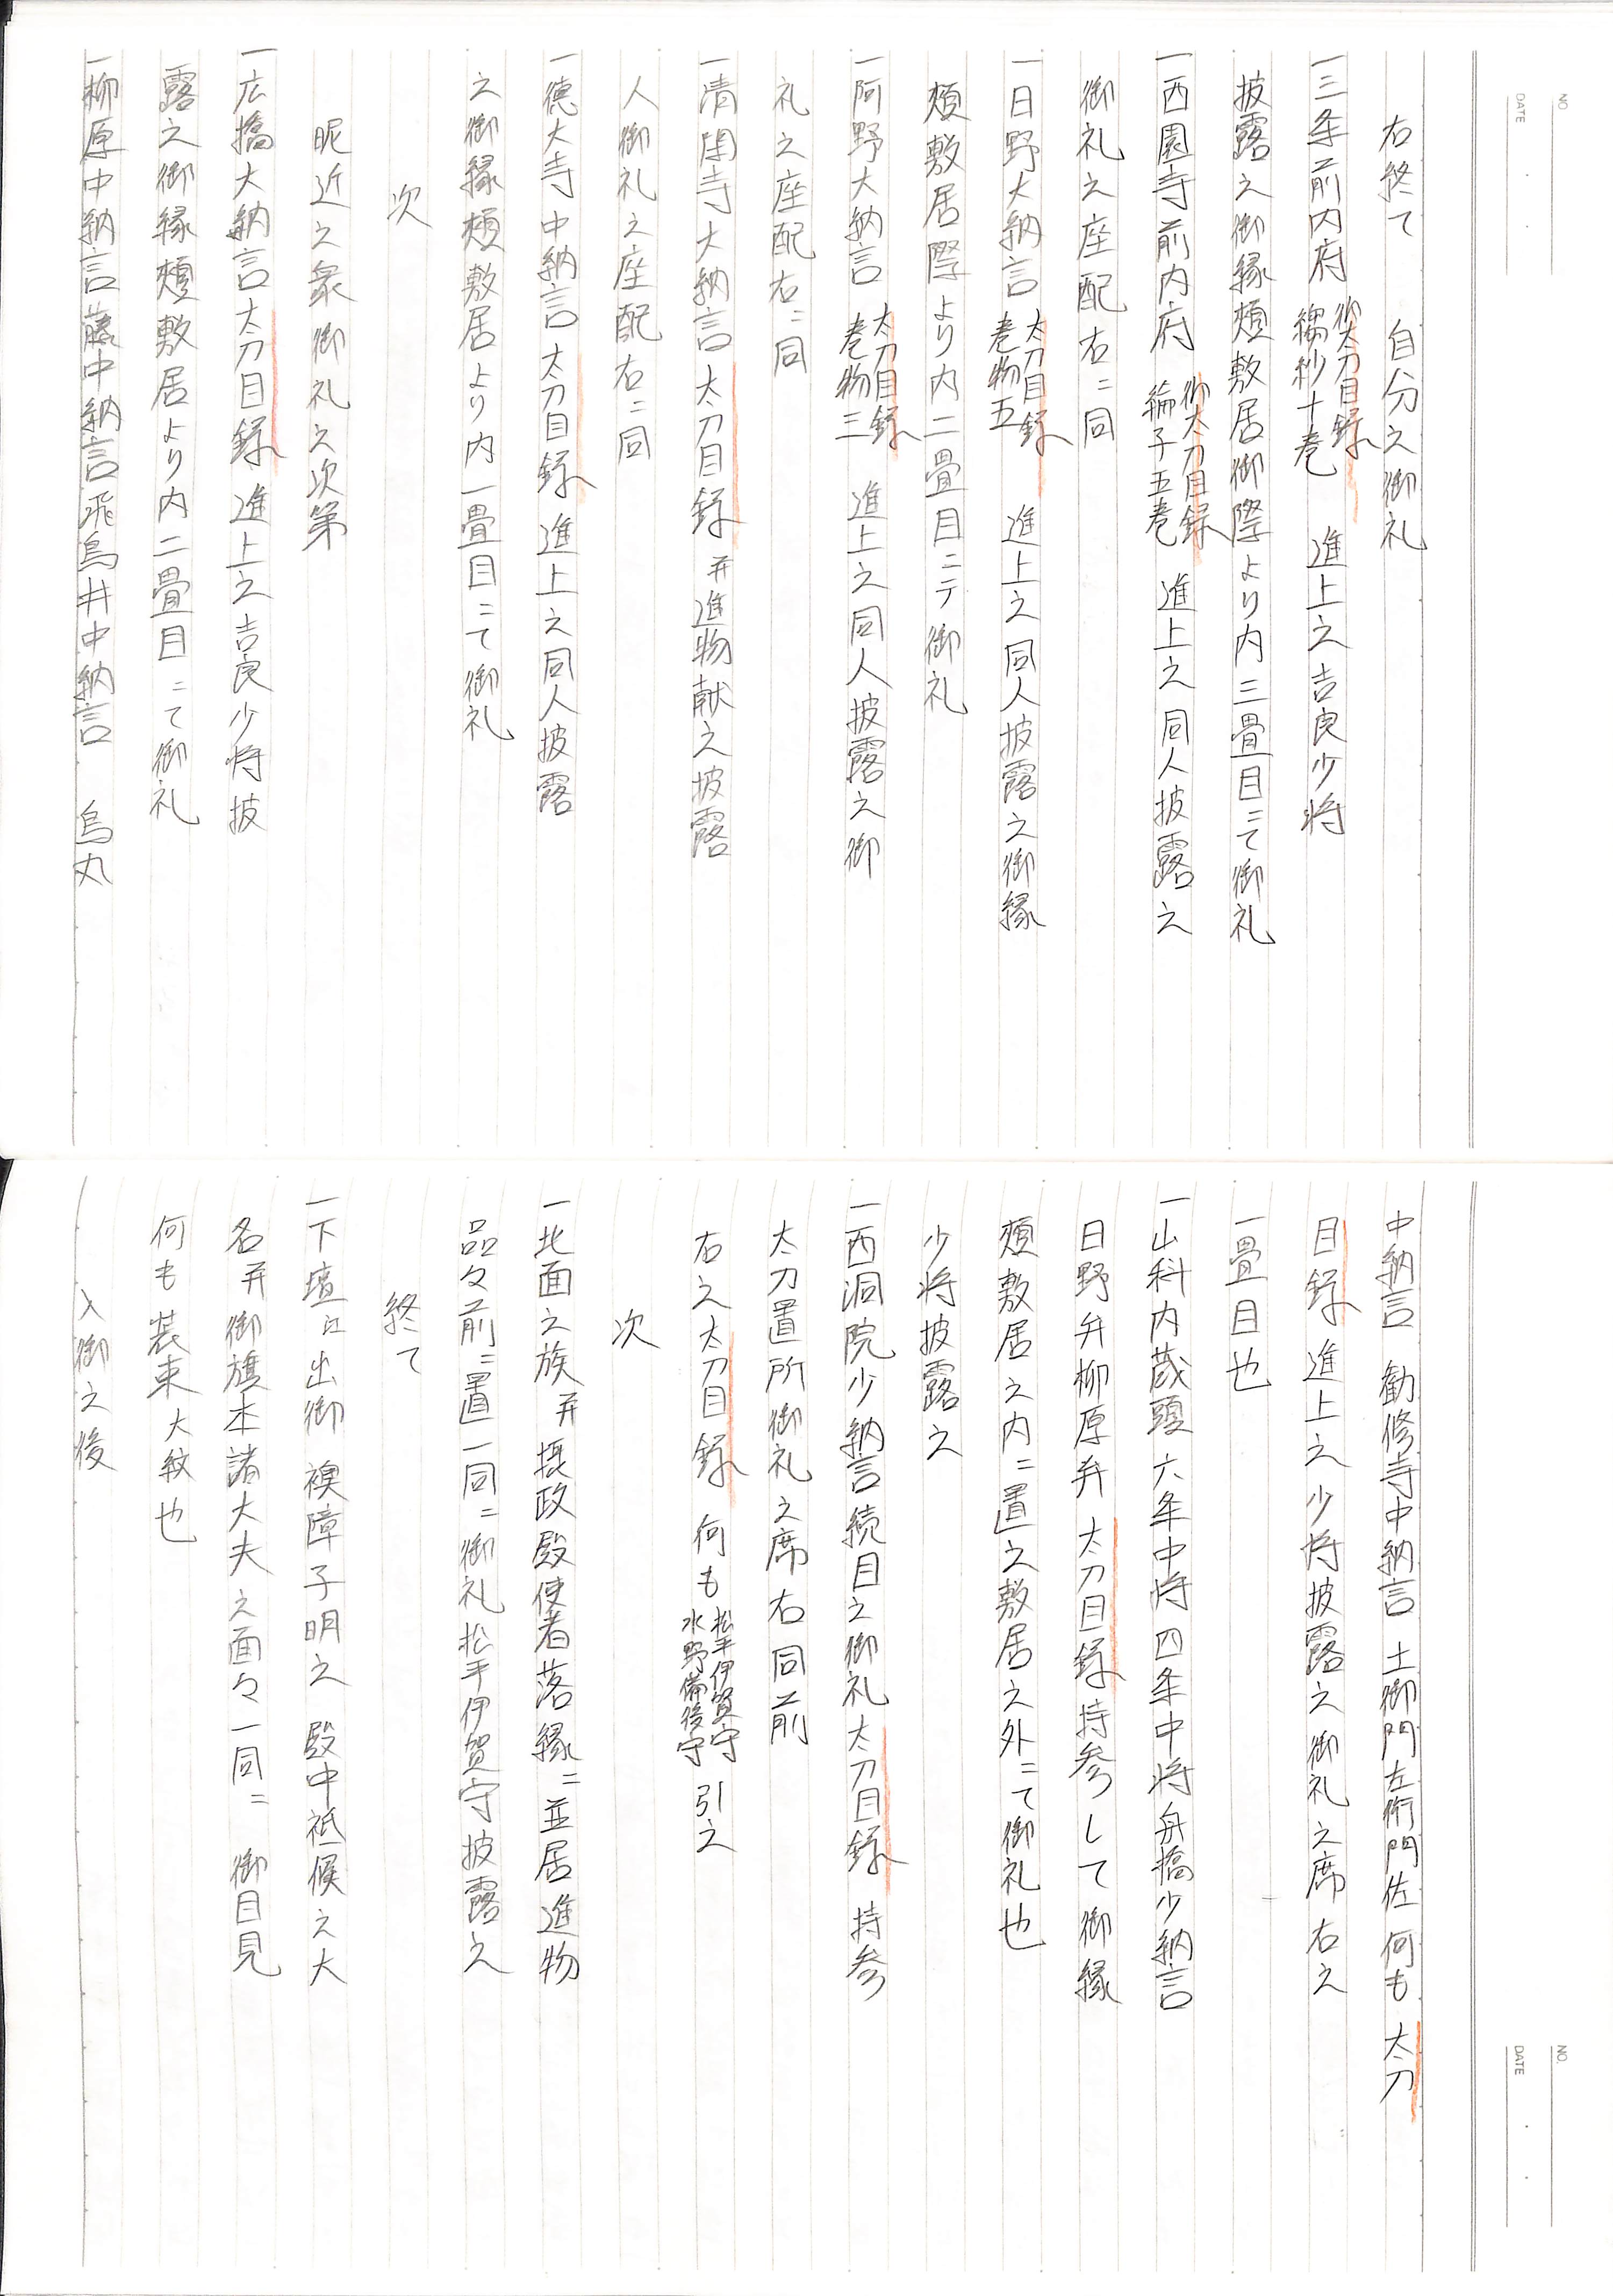 NO.
DATE
右終て 自分之御礼
一三条前内府 御太刀目録 縐紗十巻 進上之吉良少将
披露之御縁頬敷居御際より内三畳目ニて御礼
一西園寺前内府 御太刀目録 綸子五巻 進上之同人披露之
御礼之座配右ニ同
一日野大納言 太刀目録 巻物五 進上之同人披露之御縁
頬敷居際より内二畳目ニテ御礼
一阿野大納言 太刀目録 巻物三 進上之同人披露之御
礼之座配右ニ同
一清閑寺大納言太刀目録并進物献之披露
人御礼之座配右ニ同
一徳大寺中納言太刀目録進上之同人披露
之御縁頬敷居より内一畳目ニて御礼
次
昵近之衆御礼之次第
一広橋大納言太刀目録進上之吉良少将披
露之御縁頬敷居より内二畳目ニて御礼
一柳原中納言藤中納言飛鳥井中納言 烏丸
NO.
DATE
中納言 勧修寺中納言 土御門左衛門佐何も太刀
目録進上之少将披露之御礼之席右之
一畳目也
一山科内蔵頭六条中将四条中将舟橋少納言
日野弁柳原弁太刀目録持参して御縁
頬敷居之内ニ置之敷居之外ニて御礼也
少将披露之
一西洞院少納言続目之御礼太刀目録 持参
太刀置所御礼之席右同前
右之太刀目録 何も 松平伊賀守 水野備後守 引之
次
一北面之族并摂政殿使者落縁ニ並居進物
品々前ニ置一同ニ御礼松平伊賀守披露之
終て
一下壇江出御 襖障子明之 殿中祗候之大
名并御旗本諸大夫之面々一同ニ 御目見
何も装束大紋也
入御之後